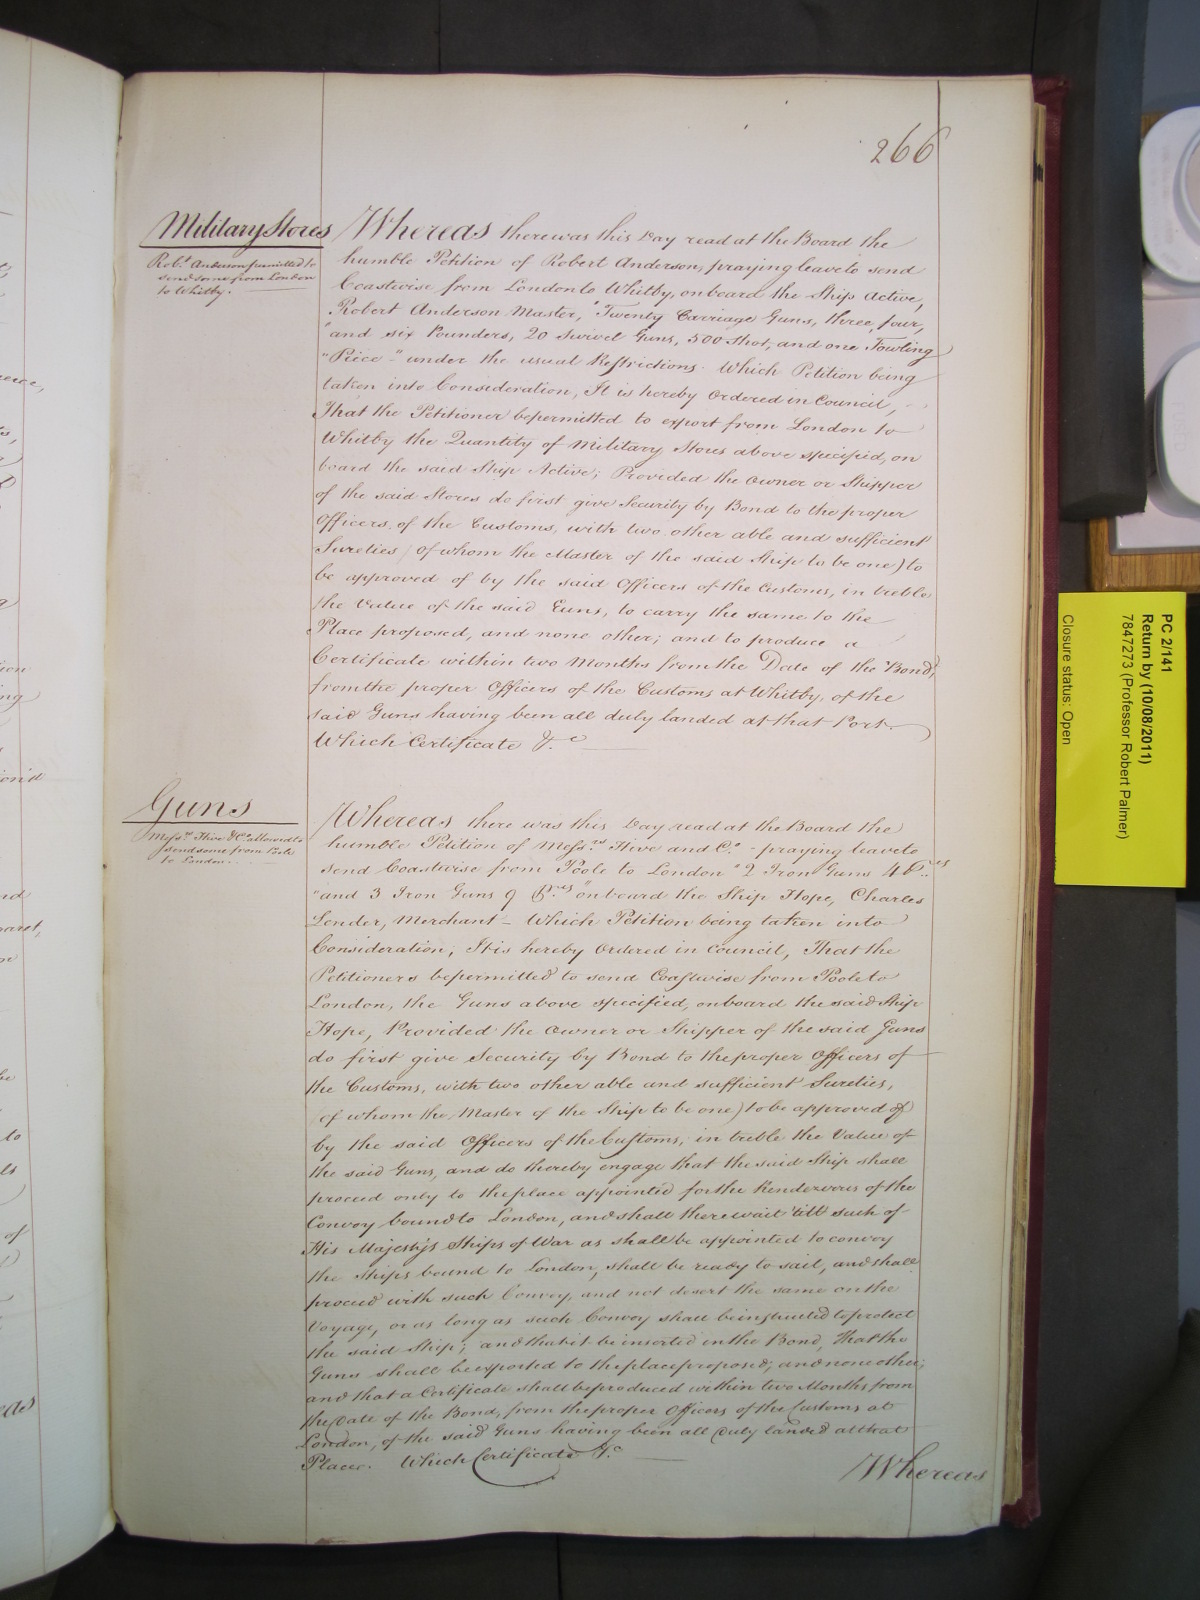 266
Military Stores
Robt. Anderson permitted to
send some from London
to Whitby.
Whereas there was this Day read at the Board the
humble Petition of Robert Anderson, praying leave to send
Coastwise from London to Whitby, on board the Ship Active,
Robert Anderson Master, "Twenty Carriage Guns, three, four,
"and six Pounders, 20 Swivel Guns, 500 Shot, and one Fowling
"Piece" under the usual Restrictions. Which Petition being
taken into Consideration, It is hereby Ordered in Council,
That the Petitioner be permitted to export from London to
Whitby the Quantity of Military Stores above specified, on
board the said Ship Active; Provided the Owner or Shipper
of the said Stores do first give Security by Bond to the proper
Officers of the Customs, with two other able and sufficient
Sureties (of whom the Master of the said Ship to be one) to
be approved of by the said Officers of the Customs, in treble
the Value of the said Guns, to carry the same to the
Place proposed, and none other; and to produce a
Certificate within two Months from the Date of the Bond,
from the proper Officers of the Customs at Whitby, of the
said Guns having been all duly landed at that Port.
Which Certificate &c
Guns
Messrs. Hive & Co. allowed to
send some from Poole
to London.
Whereas there was this Day read at the Board the
humble Petition of Messrs. Hive and Co. - praying leave to
send Coastwise from Poole to London "2 Iron Guns 4 Prs
"and 3 Iron Guns 9 Prs" on board the Ship Hope, Charles
Lender, Merchant - Which Petition being taken into
Consideration, It is hereby Ordered in Council, That the
Petitioners be permitted to send Coastwise from Poole to
London, the Guns above specified, on board the said Ship
Hope, Provided the Owner or Shipper of the said Guns
do first give Security by Bond to the proper Officers of
the Customs, with two other able and sufficient Sureties,
(of whom the Master of the Ship to be one) to be approved of
by the said Officers of the Customs, in treble the Value of
the said Guns, and do thereby engage that the said Ship shall
proceed only to the place appointed for the Rendezvous of the
Convoy bound to London, and shall there wait 'till such of
His Majesty's Ships of War as shall be appointed to convoy
the Ships bound to London, shall be ready to sail, and shall
proceed with such Convoy, and not desert the same on the
Voyage, or as long as such Convoy shall be instructed to protect
the said Ship; and that it be inserted in the Bond, That the
Guns shall be exported to the place proposed, and none other;
and that a Certificate shall be produced within two Months from
the Date of the Bond, from the proper Officers of the Customs at
London, of the said Guns having been all duly landed at that
Place. Which Certificate &c
Whereas
PC 2/141
Return by (10/08/2011)
7847273 (Professor Robert Palmer)
Closure status: Open